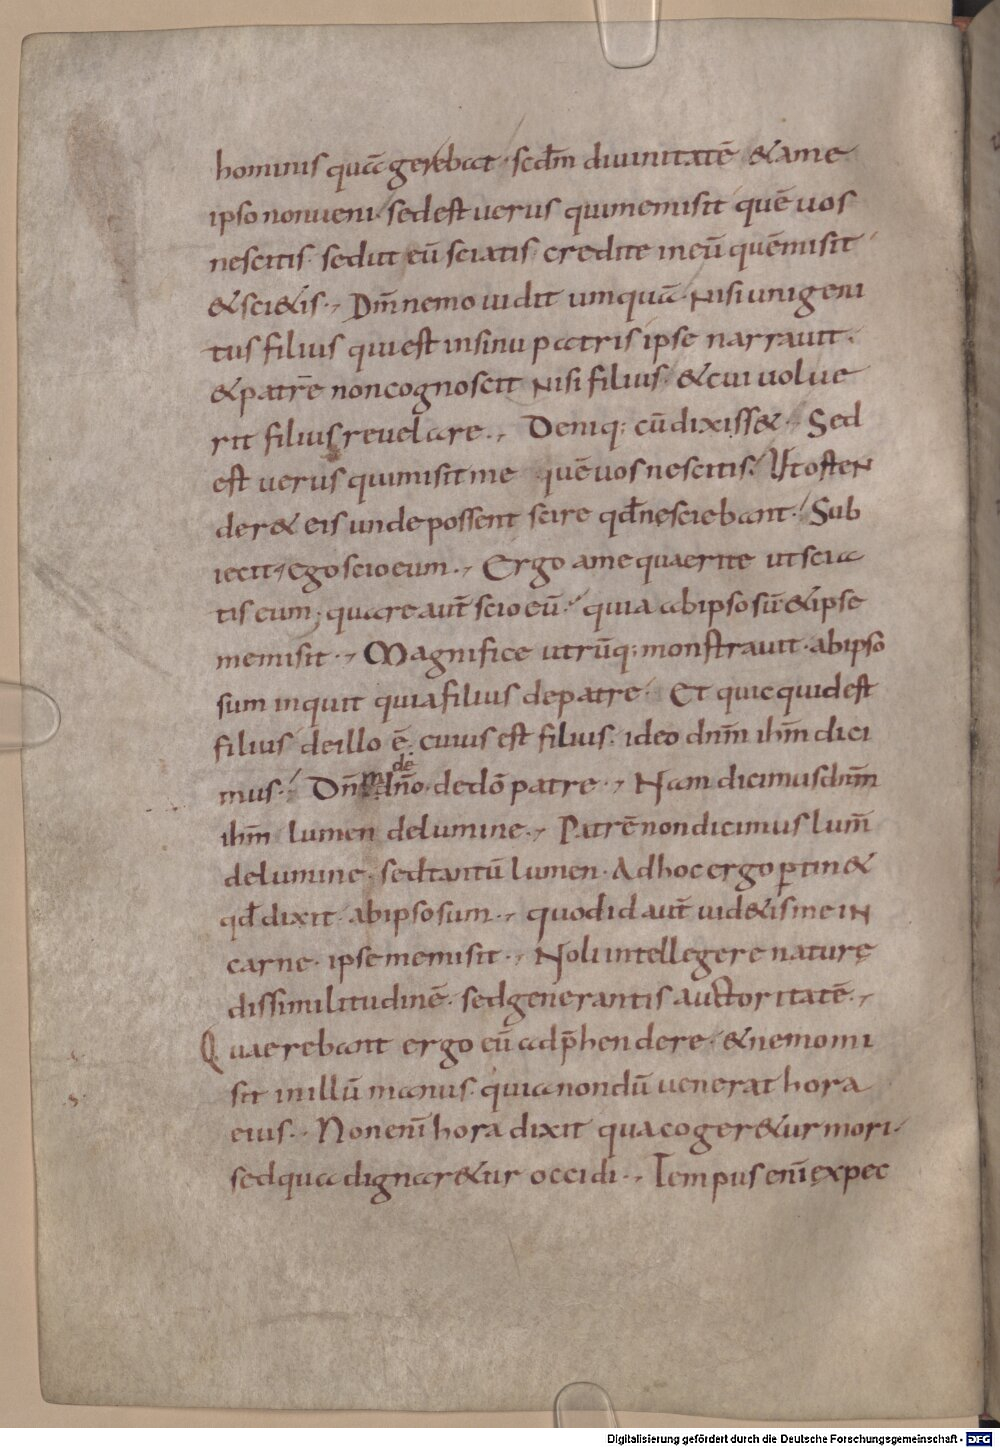 hominis quā gerebat · scdm̄ diuinitatē &ame
ipso nonueni · sedest uerus quimemisit quē uos
nescitis · sed ut eū sciatis credite ineū quēmisit
&sci&is · Dm̄ nemo uidit umquā · Nisi unigeni
tus filius qui est insinu patris ipse narrauit ·
&patrē noncognoscit Nisi filius · &cui uolue
rit filius reuelare · Deniq; cū dixiss& · Sed
est uerus quimisit me quē uos nescitis · Ut osteN
der& eis unde possent scire qđ nesciebant · Sub
iecit · ego scio eum · Ergo ame quaerite ut scia
tis eum · quare aut̄ scio eū · quia abipso sū &ipse
memisit · Magnifice utrūq; monstrauit · abipso
sum inquit quia filius depatre · Et quicquid est
filius deillo ē · cuius est filius · ideo dnm̄ ihm̄ dici
mus · Dn̄m de dn̄o · dedō patre · Nam dicimus dnm̄
ihm̄ lumen delumine · Patrē nondicimus lum̄
delumine · sed tantū lumen · Adhoc ergo ꝑtin&
qđ dixit · abipso sum · quod id aut̄ uid&is me iN
carne · ipse memisit · Noli intellegere naturę
dissimilitudinē · sed generantis auctoritatē ·
Quaerebant ergo eū adp̄hendere · &nemo mi
sit inillū manus · quia nondū uenerat hora
eius · Non enī hora dixit qua coger&ur mori ·
sed qua dignar&ur occidi · Tempus enī expec
Digitalisierung gefördert durch die Deutsche Forschungsgemeinschaft - DFG